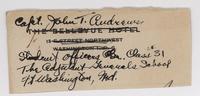 Capt. John T. Andrews
THE BELLEVUE HOTEL
15 E STREET NORTHWEST
WASHINGTON D.C.
Student Officers Co. Class 31
The Adjutant Generals School
Ft Washington, Md.